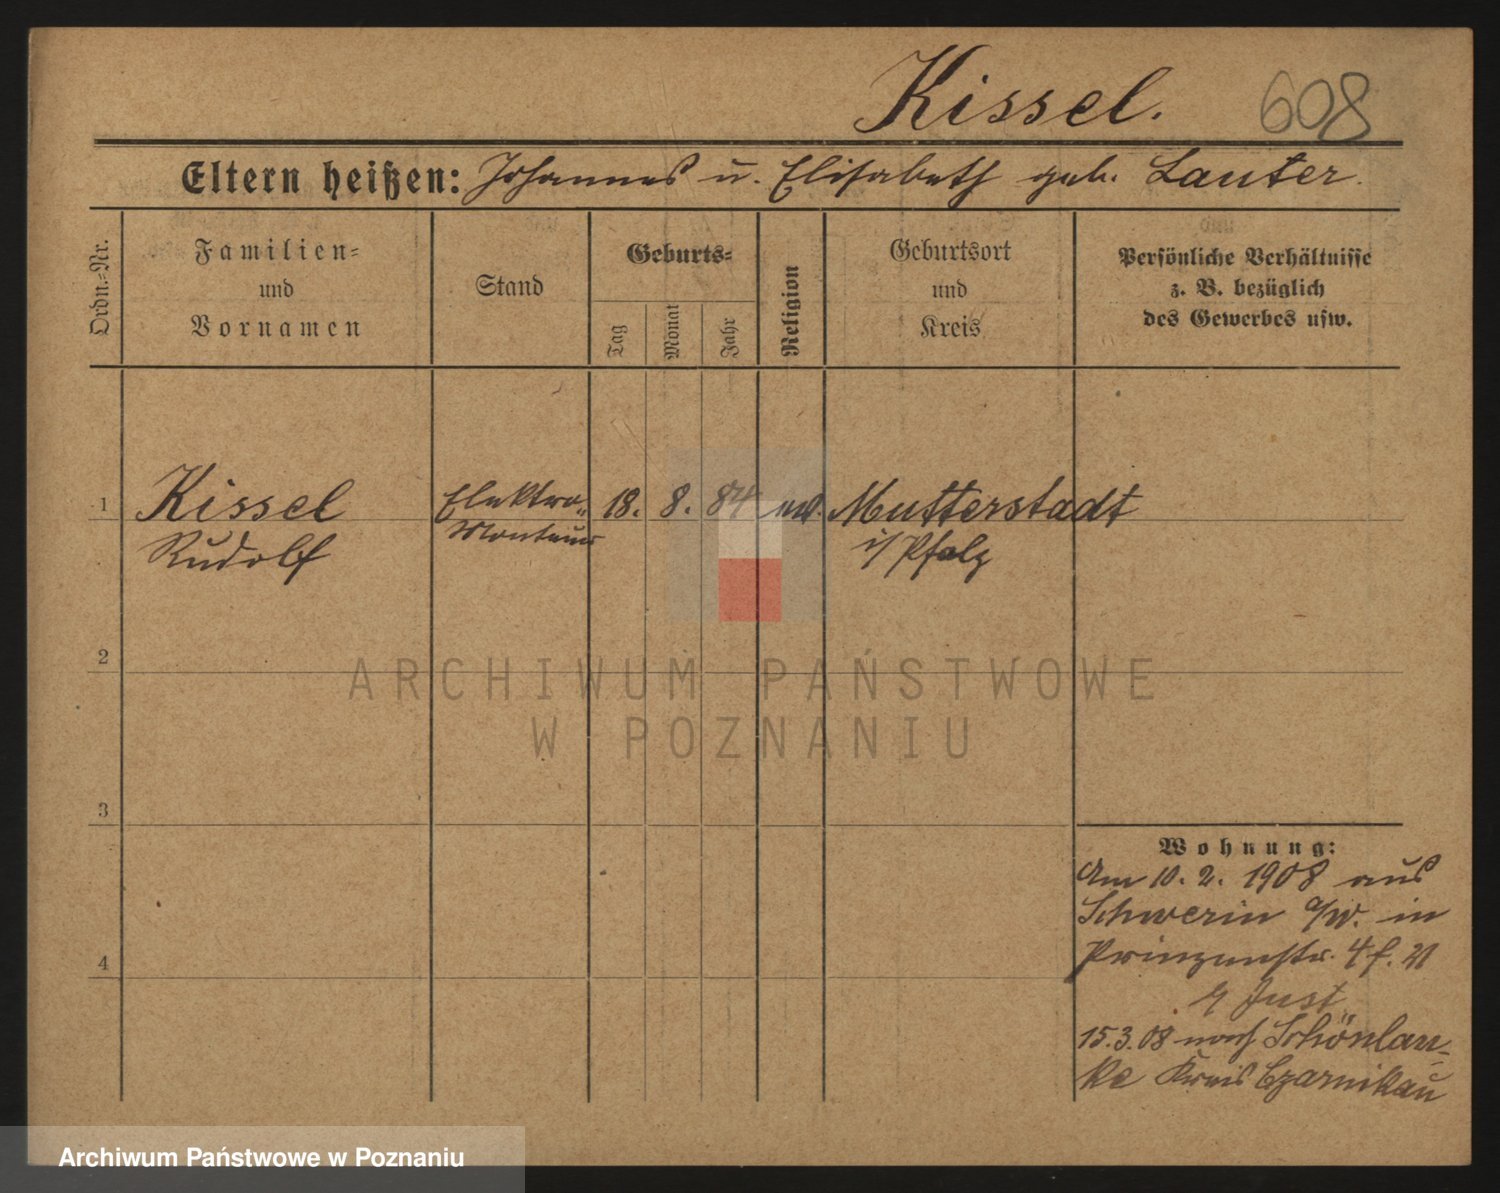 Kissel. 608
Eltern heißen: Johannes u. Elisabeth geb. Lauter.
Ordn.-Nr.
Familien-
und
Vornamen
Stand
Geburts-
Tag
Monat
Jahr
Religion
Geburtsort
und
Kreis
Persönliche Verhältnisse
z. B. bezüglich
des Gewerbes usw.
1 Kissel Elektro- 18. 8. 84 Mutterstadt
Rudolf Monteur i/Pfalz
2
3
4
Wohnung:
Am 10. 2. 1908 aus
Schwerin a/W. in
Prinzenstr. 4
Just
15.3.08 nach Schönlan-
ke Kreis Czarnikau
ARCHIWUM PAŃSTWOWE
W POZNANIU
Archiwum Państwowe w Poznaniu